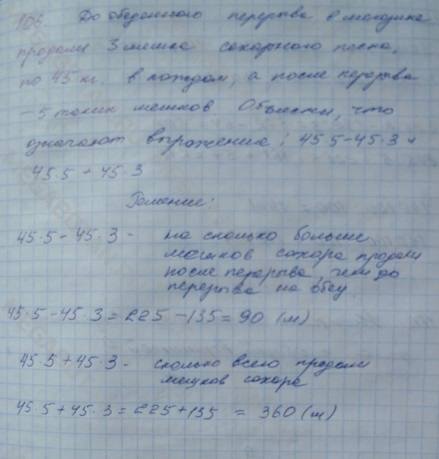 106. До обеденного перерыва в магазине
продали 3 мешка сахарного песка,
по 45 кг. в каждом, а после перерыва
- 5 таких мешков Объясни, что
означают выражения: 45·5-45·3 и
45·5+45·3
Решение:
45·5-45·3 - на сколько больше
мешков сахара продали
после перерыва, чем до
перерыва на обед.
45·5-45·3=225-135=90 (м)
45·5+45·3- сколько всего продали
мешков сахара
45·5+45·3=225+135 = 360 (м)